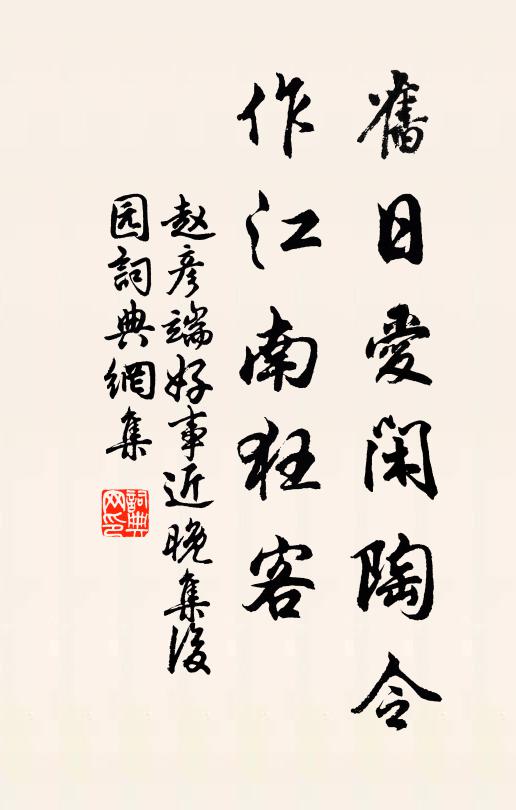 舊日愛閑陶令
作江南狂客
赵彦端好事近晚集後
园詞典網集
詞典
网印